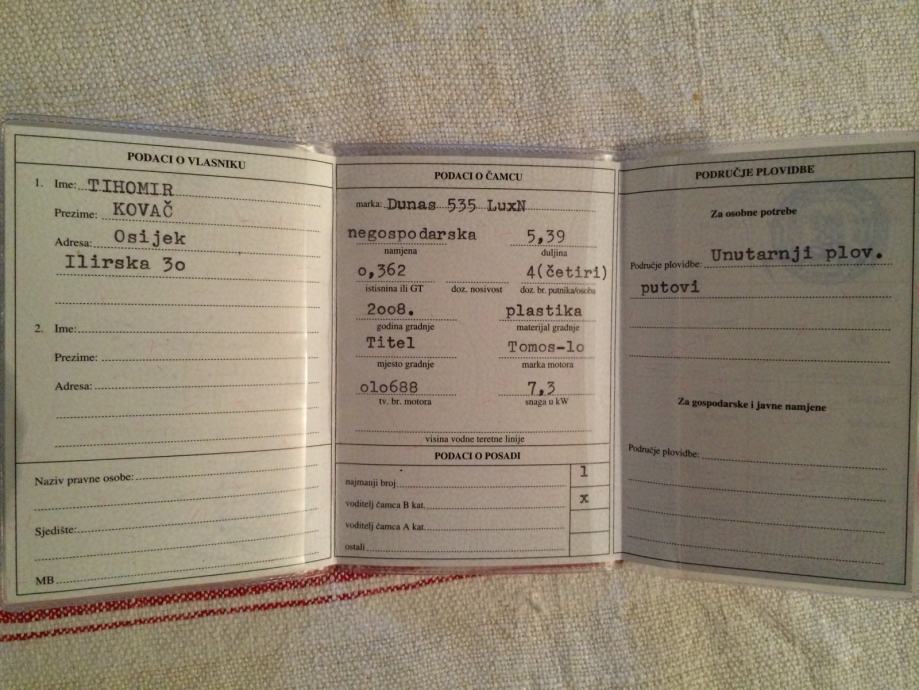 PODACI O VLASNIKU
1. Ime: TIHOMIR
Prezime: KOVAČ
Adresa: Osijek
Ilirska 3o
2. Ime:
Prezime:
Adresa:
Naziv pravne osobe:
Sjedište:
MB
PODACI O ČAMCU
marka: Dunas 535 LuxN
negospodarska 5,39
namjena duljina
o,362 4(četiri)
istisnina ili GT doz. nosivost doz. br. putnika/osoba
2oo8. plastika
godina gradnje materijal gradnje
Titel Tomos-lo
mjesto gradnje marka motora
olo688 7,3
tv. br. motora snaga u kW
visina vodne teretne linije
PODACI O POSADI
najmanji broj l
voditelj čamca B kat. x
voditelj čamca A kat.
ostali
PODRUČJE PLOVIDBE
Za osobne potrebe
Područje plovidbe: Unutarnji plov.
putovi
Za gospodarske i javne namjene
Područje plovidbe: